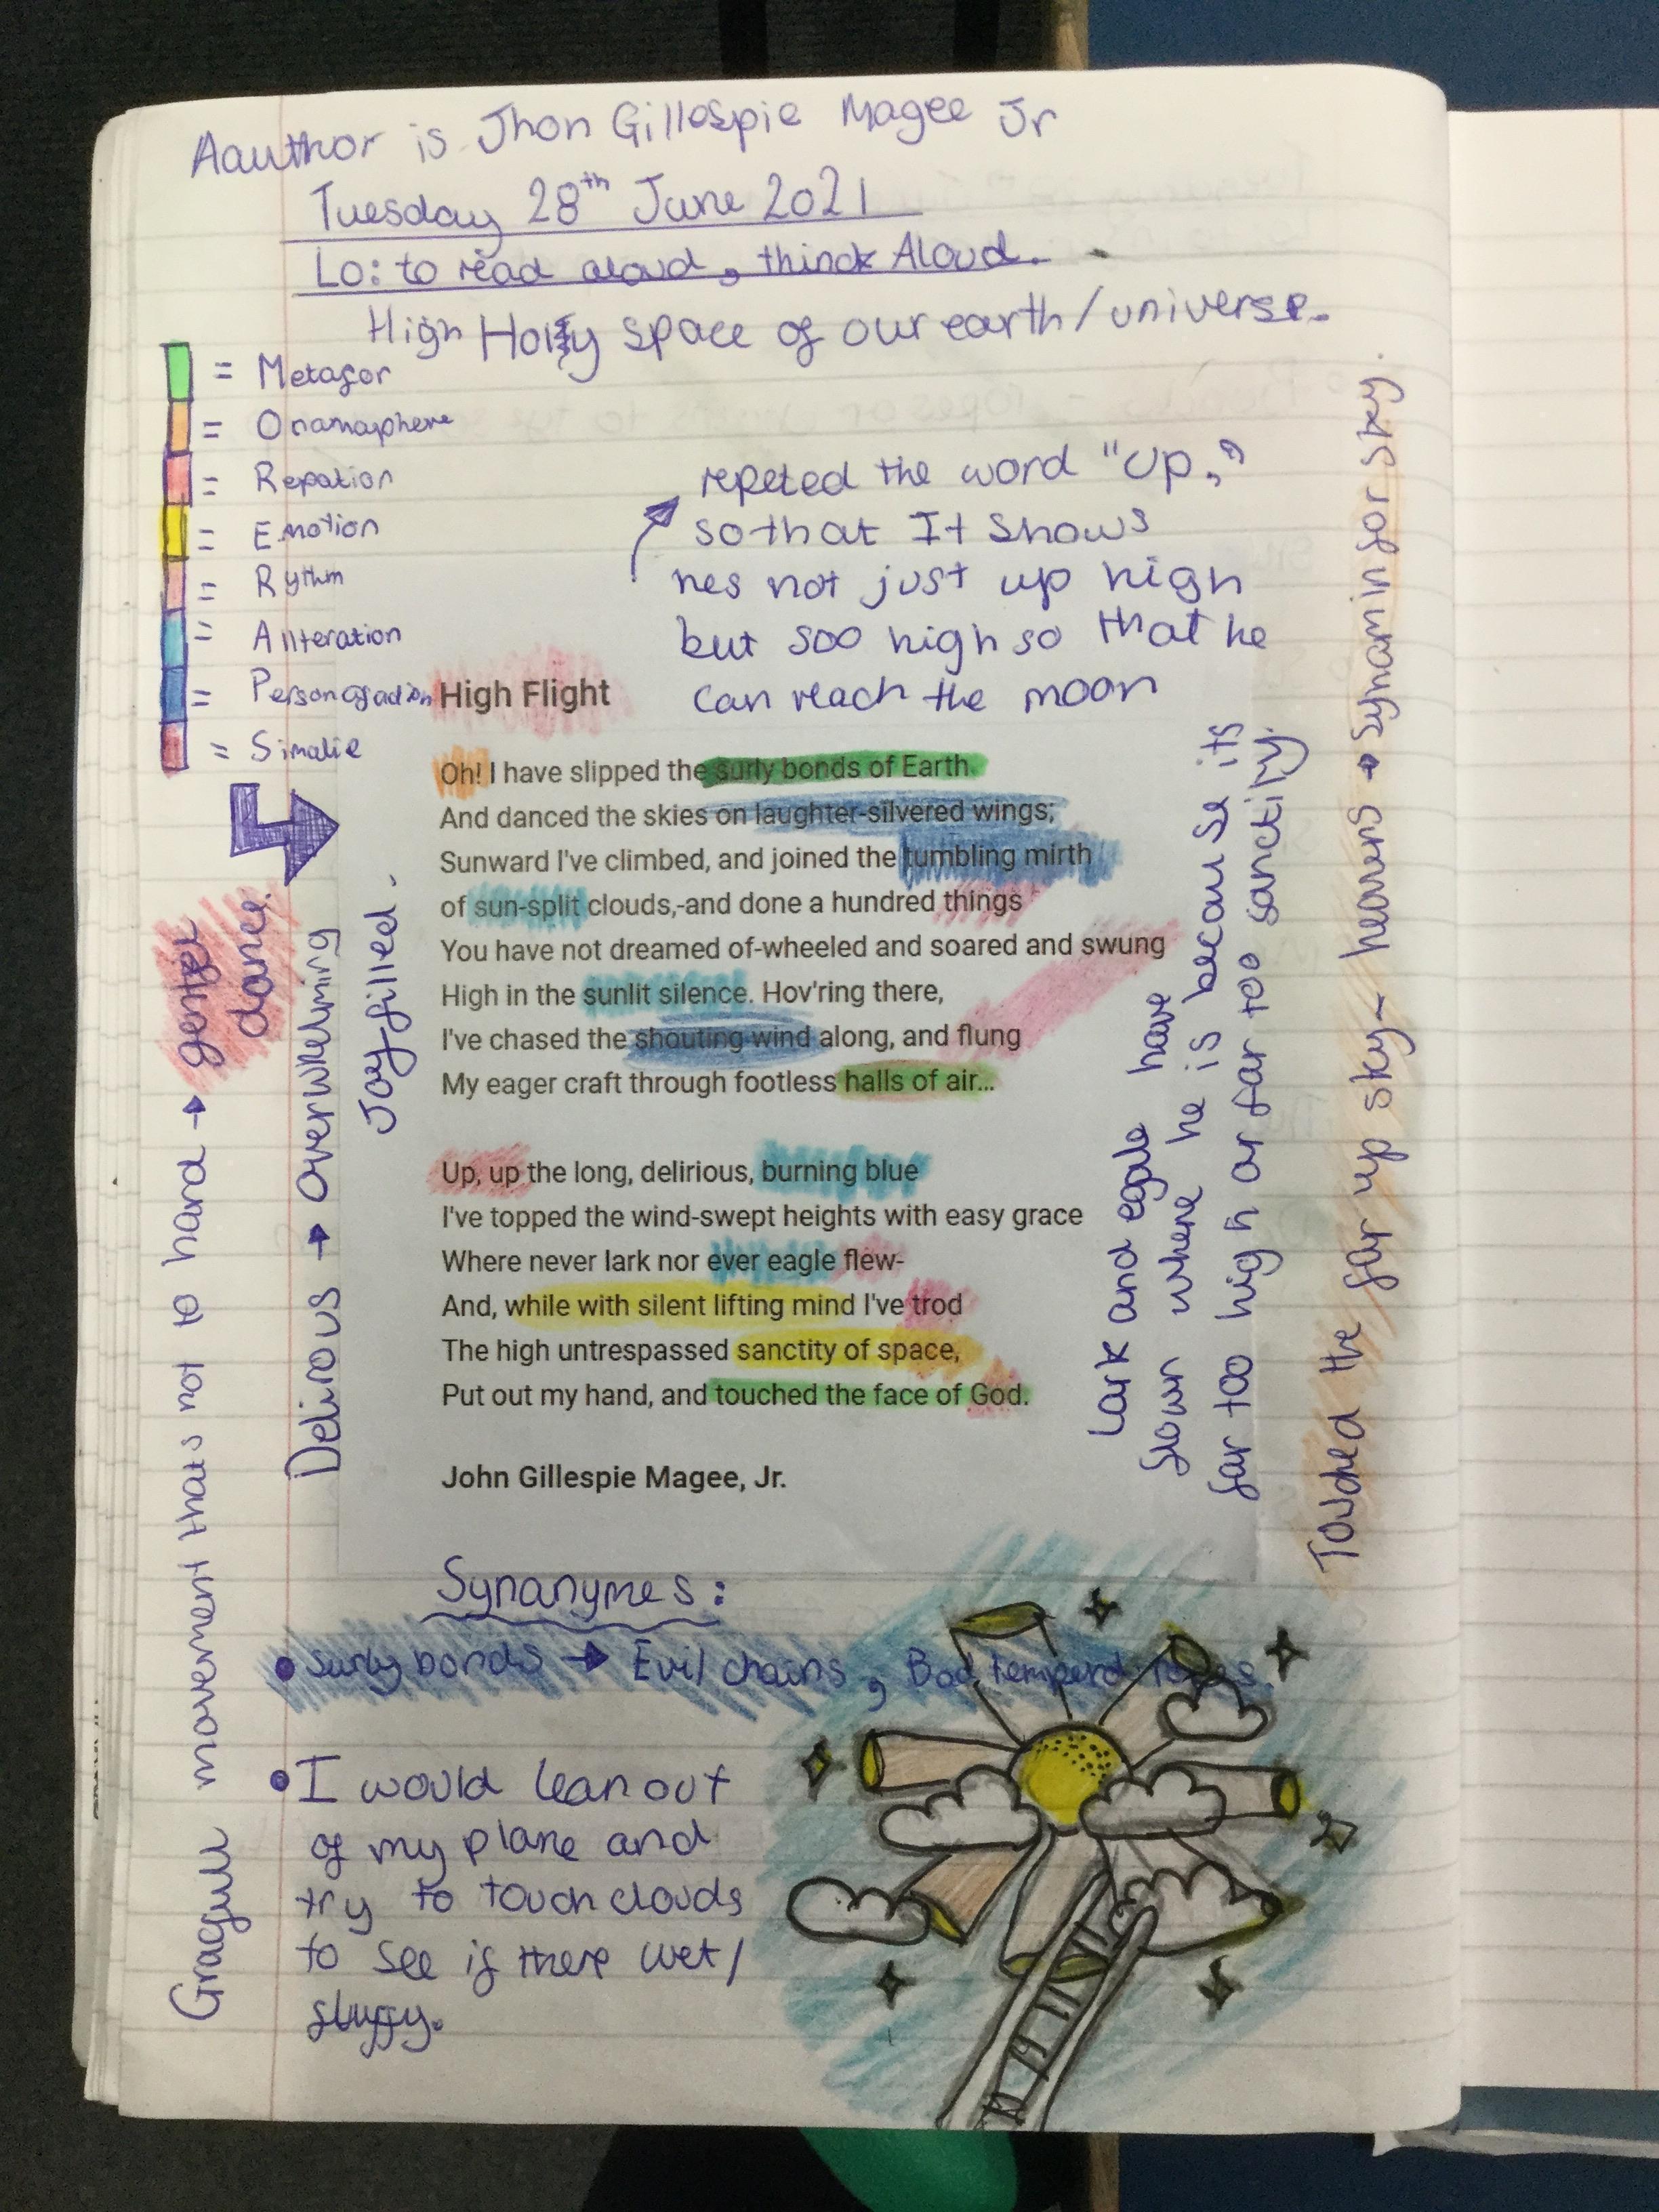 Aauthor is Jhon Gillespie Magee Jr
Tuesday 28th June 2021
Lo: to read aloud, thinck Aloud.
High Holy space of our earth/universe.
= Metafor
= Onamaphere
= Repation
= Emotion
= Rythm
= Aliteration
= Personafication
= Simalie
repeted the word "Up,"
so that It shows
hes not just up high
but soo high so that he
can reach the moon
High Flight
Oh! I have slipped the surly bonds of Earth.
And danced the skies on laughter-silvered wings;
Sunward I've climbed, and joined the tumbling mirth
of sun-split clouds,-and done a hundred things
You have not dreamed of-wheeled and soared and swung
High in the sunlit silence. Hov'ring there,
I've chased the shouting wind along, and flung
My eager craft through footless halls of air...
Up, up the long, delirious, burning blue
I've topped the wind-swept heights with easy grace
Where never lark nor ever eagle flew-
And, while with silent lifting mind I've trod
The high untrespassed sanctity of space,
Put out my hand, and touched the face of God.
John Gillespie Magee, Jr.
Gragful movement thats not to hard → gentel
dance.
Delirous → overwhelming
Joy-filled.
Lark and egale have
flown where he is because its
far too high or far too sanctity.
Touched the far up sky - heavens → Synamin for sky.
Synanymes:
• surly bonds → Evil chains, Bad temperd ropes.
• I would lean out
of my plane and
try to touch clouds
to see if there wet/
fluffy.